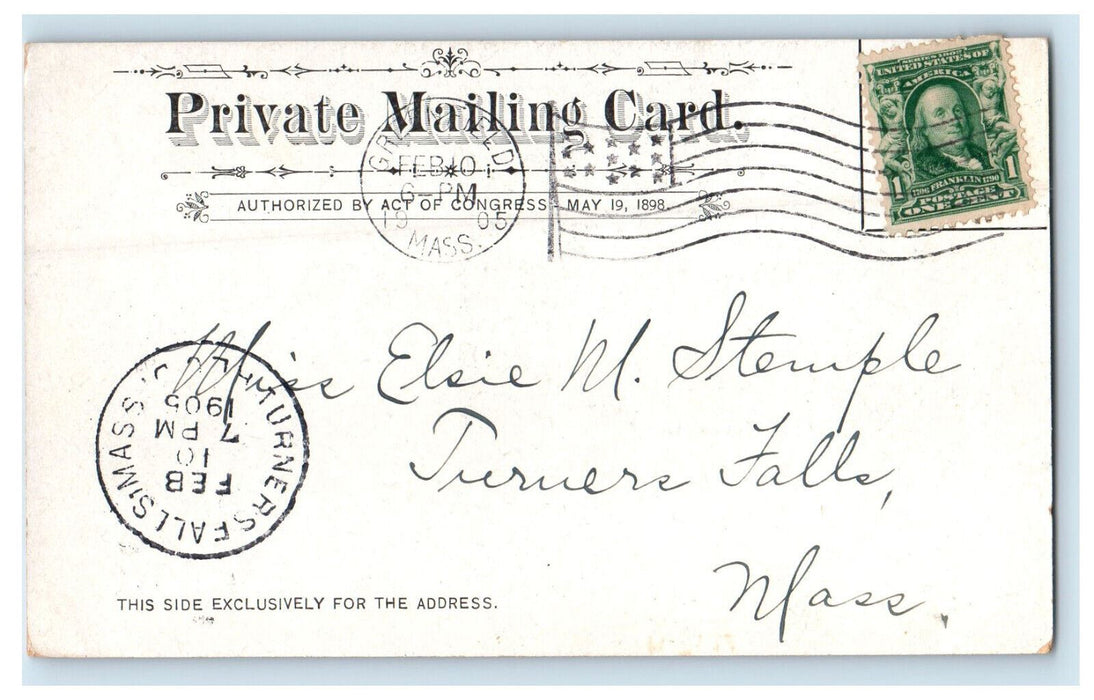 Private Mailing Card.
AUTHORIZED BY ACT OF CONGRESS, MAY 19, 1898.
GREENFIELD
FEB 10
6-PM
19 05
MASS.
SERIES 1902
UNITED STATES OF
AMERICA
1 1
1706 FRANKLIN 1790
POSTAGE
ONE CENT
Miss Elsie M. Stemple
Turners Falls,
Mass.
TURNERS FALLS, MASS.
FEB
10
7 PM
1905
THIS SIDE EXCLUSIVELY FOR THE ADDRESS.